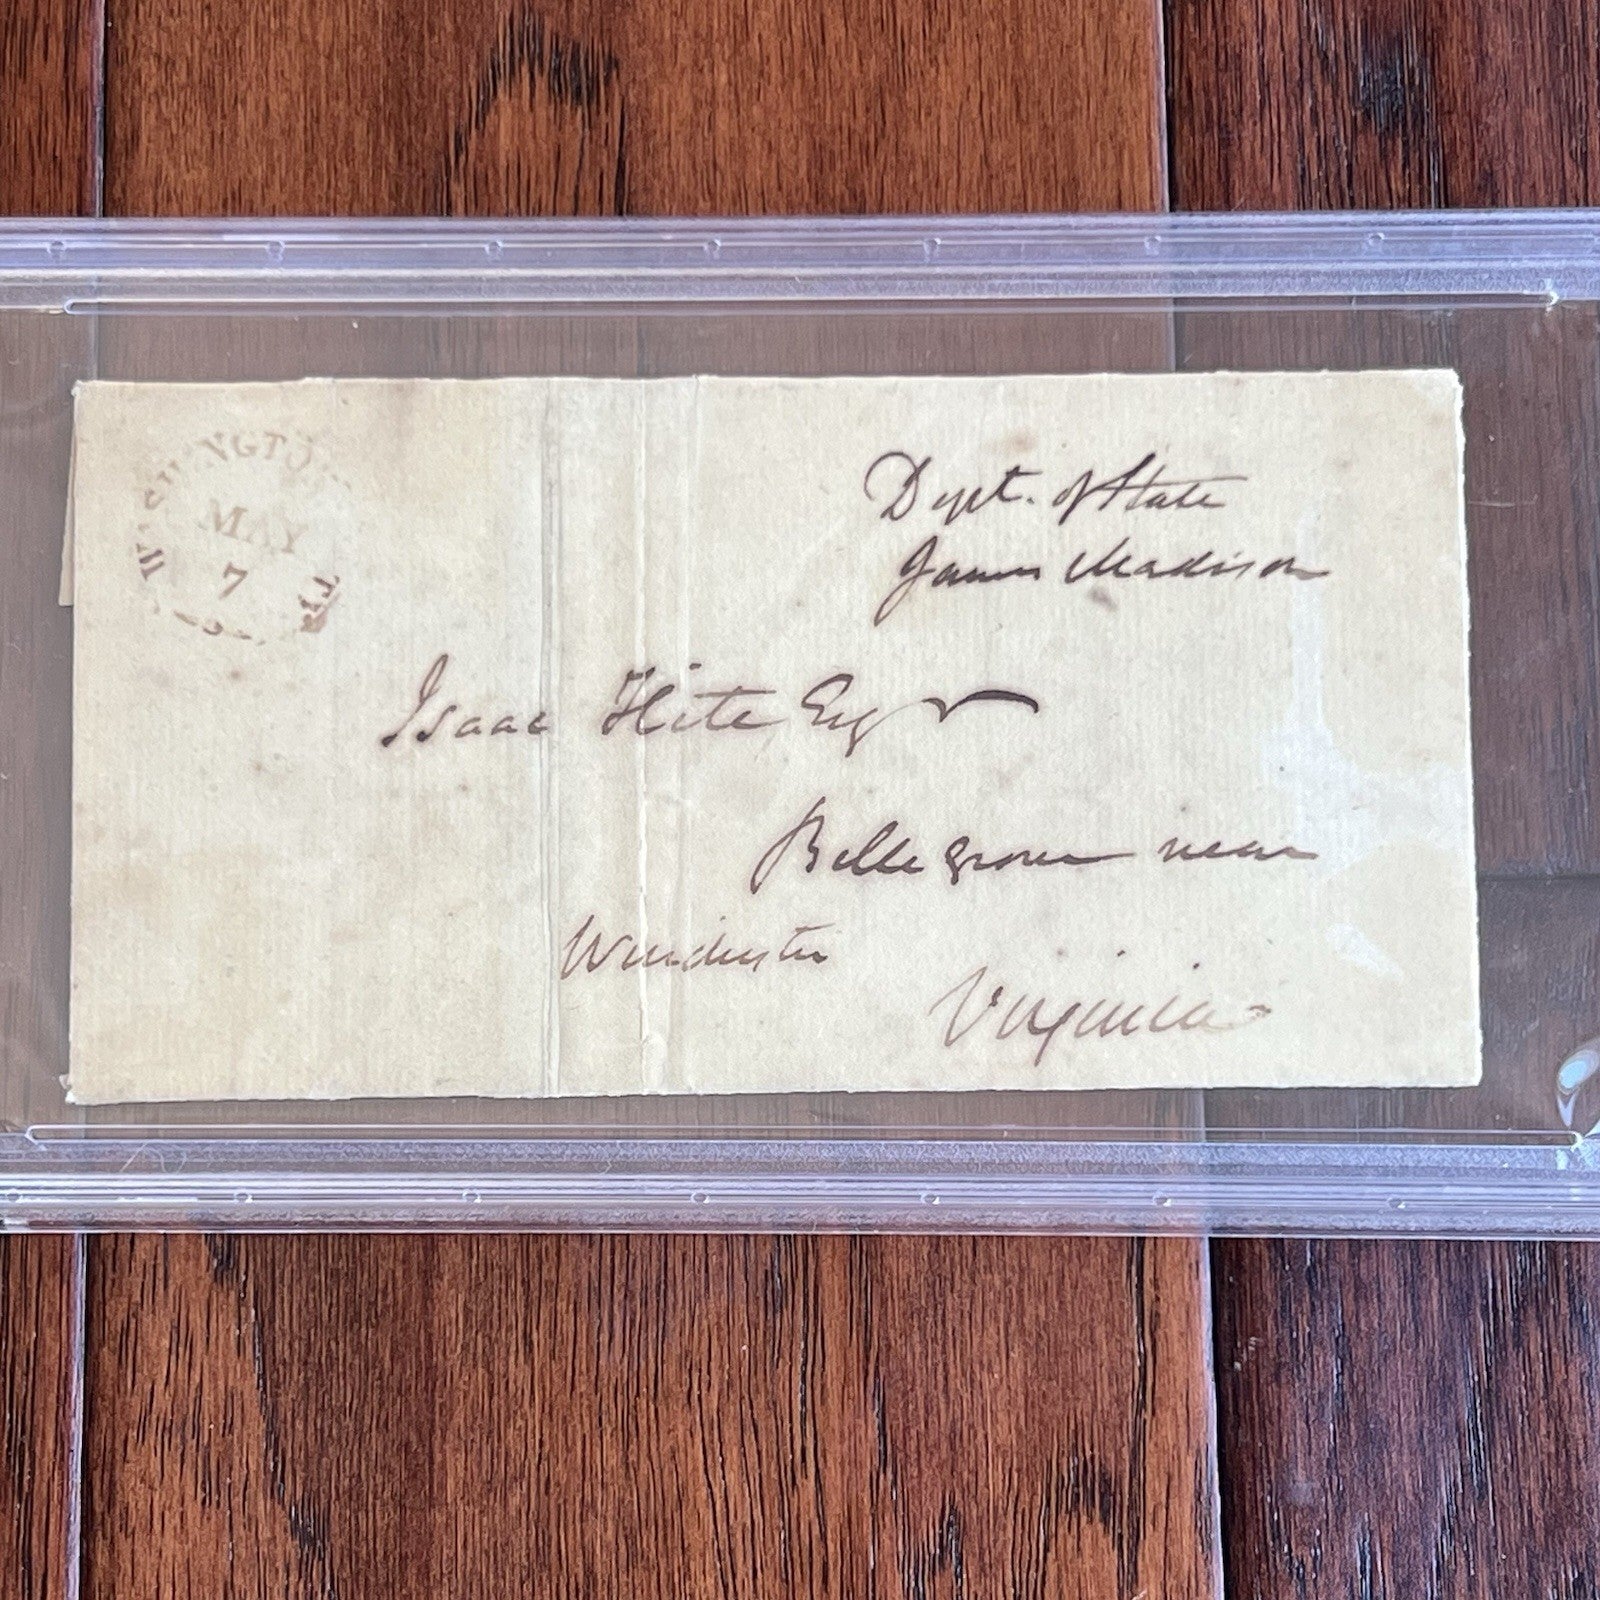 WASHINGTON
MAY
7
Dept. of State
James Madison
Isaac Hite Esqr
Belle grove near
Winchester
Virginia